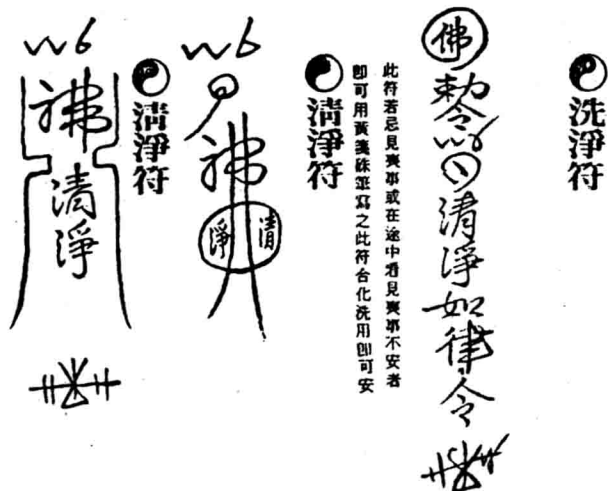 洗淨符
佛
勅令
清淨如律令
此符若忌見喪事或在途中看見喪事不安者
即可用黃箋硃筆寫之此符台化洗用即可安
清淨符
佛
清
淨
清淨符
佛
清淨